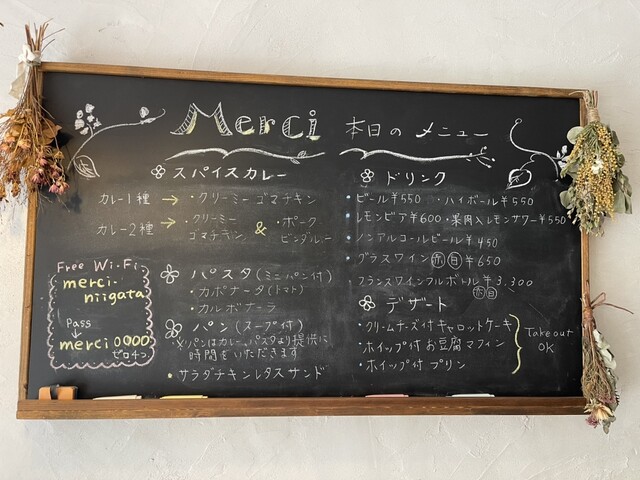 Merci 本日の メニュー
スパイスカレー
カレー1種 → ・クリーミー ゴマチキン
カレー2種 → ・クリーミー ゴマチキン & ・ポーク ビンダルー
Free Wi-Fi
merci-
niigata
Pass
↓
merci 0000
ゼロ4つ
パスタ (ミニパン付)
・カポナータ(トマト)
・カルボナーラ
パン (スープ付)
※パンはカレー、パスタより提供に
時間をいただきます
・サラダチキンレタスサンド
ドリンク
・ビール¥550 ・ハイボール¥550
・レモンビア¥600 ・果肉入レモンサワー¥550
・ノンアルコールビール¥450
・グラスワイン 赤 白 ¥650
・フランスワインフルボトル ¥3,300
赤 白
デザート
・クリームチーズ付キャロットケーキ
・ホイップ付お豆腐マフィン
・ホイップ付 プリン
Take out
OK